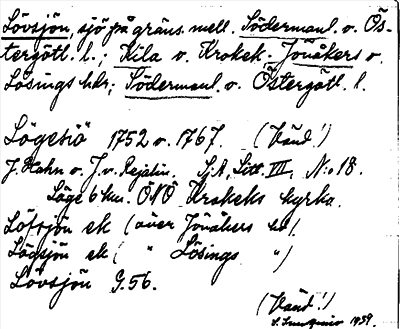 Lövsjön, sjö på gräns. mell. Södermanl. o. Ös-
tergötl. l.; Kila o. Krokek. Jönåkers o.
Lösings hdr; Södermanl. o. Östergötl. l.
Lögesiö 1752 o. 1767. (Vänd!)
J. Hahn o. J. v. Rejalin. Lj. A, Litt. VII, No 18.
Läge 6 km. ÖNÖ Krokeks kyrka.
Löfsjön ek (över Jönåkers hd)
Lögsjön ek ( " Lösings ")
Lövsjön G.56.
(Vänd!)
1939.